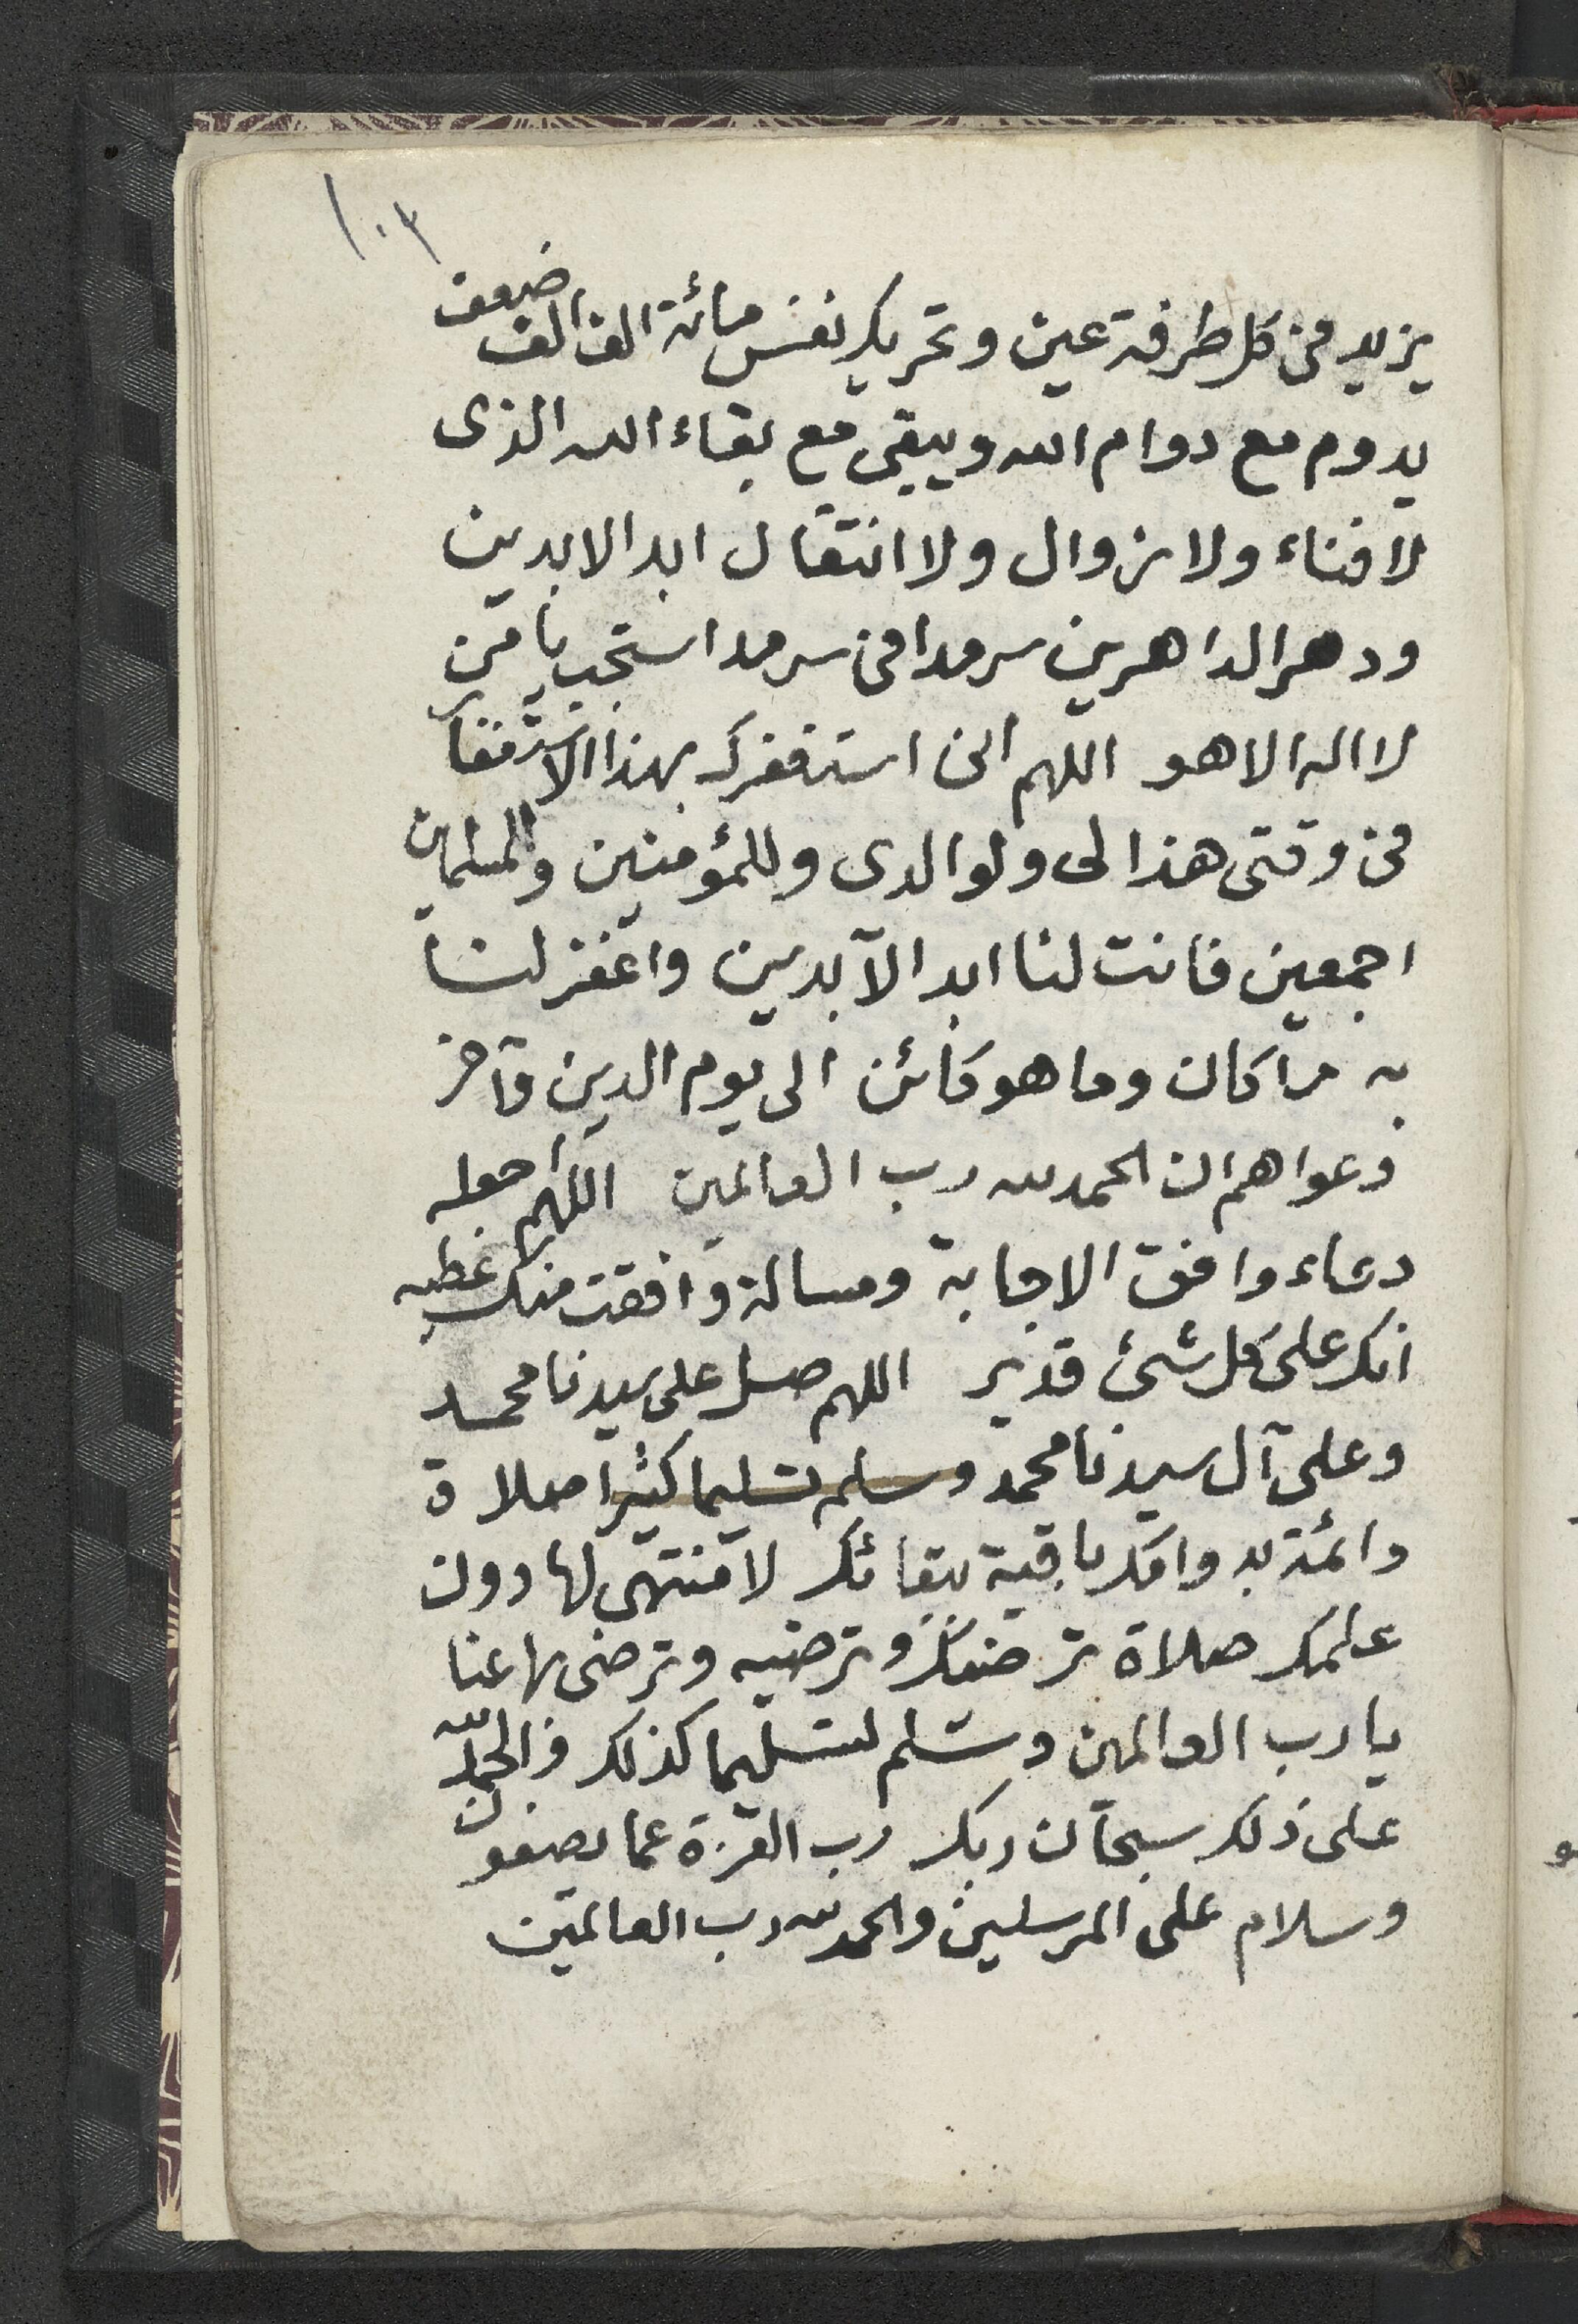 ١٠٣
يزيد في كل طرفة عين وتحريك نفس مائة الف الف ضعف
يدوم مع دوام الله ويبقى مع بقاء الله الذى
لا فناء ولا زوال ولا انتقال ابد الابدين
ودهر الداهرين سرمدا في سرمد استجب يا من
لا اله الا هو اللهم انى استغفرك بهذا الاستغفار
في وقتى هذا لى ولوالدى وللمؤمنين والمسلمين
اجمعين فانت لنا ابد الآبدين واغفر لنا
به ما كان وما هو كائن الى يوم الدين وآخر
دعواهم ان الحمد لله رب العالمين اللهم اجعله
دعاء وافق الاجابة ومسالة وافقت منك عطيه
انك على كل شئ قدير اللهم صل على سيدنا محمد
وعلى آل سيدنا محمد وسلم تسليما كثيرا صلاة
دائمة بدوامك باقية ببقائك لا منتهى لها دون
علمك صلاة ترضيك وترضيه وترضى بها عنا
يا رب العالمين وسلم تسليما كذلك والحمد لله
على ذلك سبحان ربك رب العزة عما يصفون
وسلام على المرسلين والحمد لله رب العالمين